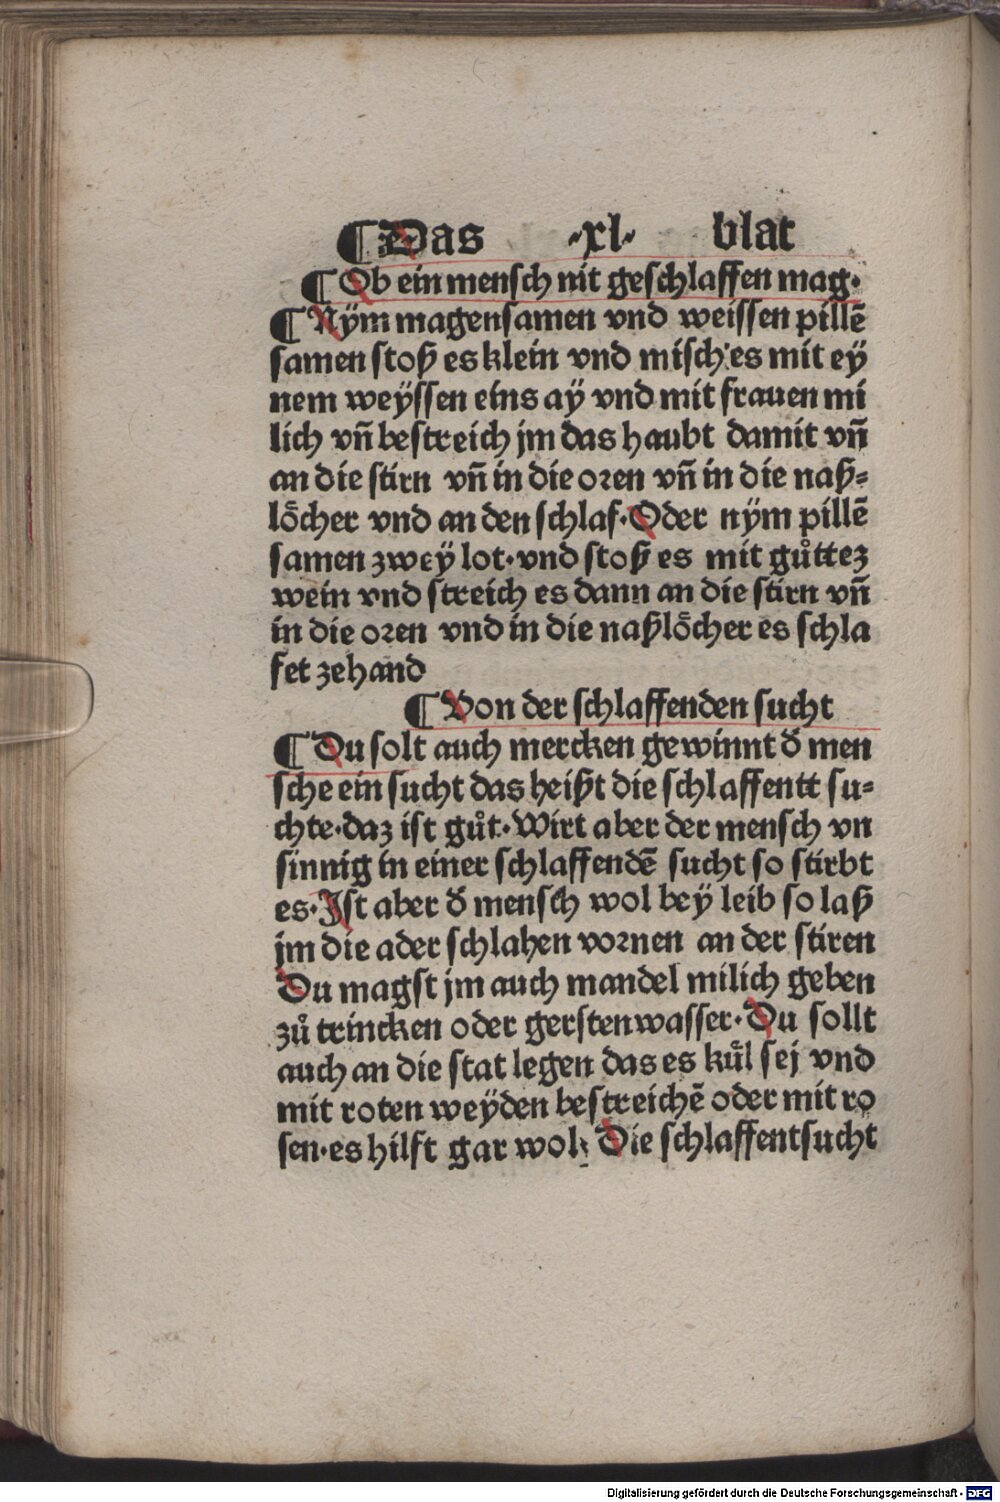 ¶ Das ·xl· blat
¶ Ob ein mensch nit geschlaffen mag·
¶ Nÿm magensamen vnd weissen pillē
samen stoß es klein vnd misch es mit eÿ
nem weÿssen eins aÿ vnd mit frauen mi
lich vn̄ bestreich jm das haubt damit vn̄
an die stirn vn̄ in die oren vn̄ in die naß⸗
loͤcher vnd an den schlaf· Oder nÿm pillē
samen zweÿ lot· vnd stoß es mit guͦttez
wein vnd streich es dann an die stirn vn̄
in die oren vnd in die naßloͤcher es schla
fet zehand
¶ Von der schlaffenden sucht
¶ Du solt auch mercken gewinnt d̄ men
sche ein sucht das heißt die schlaffentt su⸗
chte· daz ist guͦt· Wirt aber der mensch vn
sinnig in einer schlaffendē sucht so stirbt
es· Ist aber d̄ mensch wol beÿ leib so laß
jm die ader schlahen vornen an der stiren
Du magst jm auch mandel milich geben
zuͦ trincken oder gerstenwasser· Du sollt
auch an die stat legen das es kuͤl sej vnd
mit roten weÿden bestreichē oder mit ro
sen· es hilft gar wol· Die schlaffentsucht
Digitalisierung gefördert durch die Deutsche Forschungsgemeinschaft - DFG